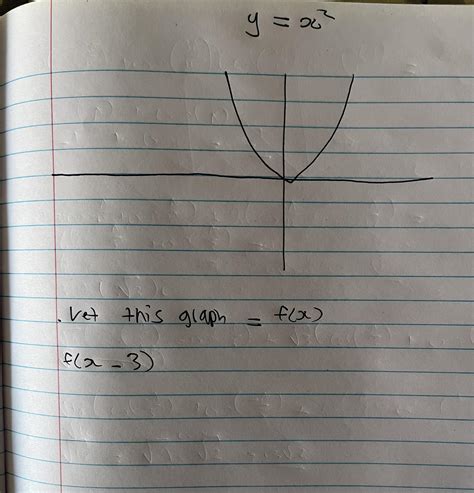 y = x²
. Let this graph = f(x)
f(x - 3)